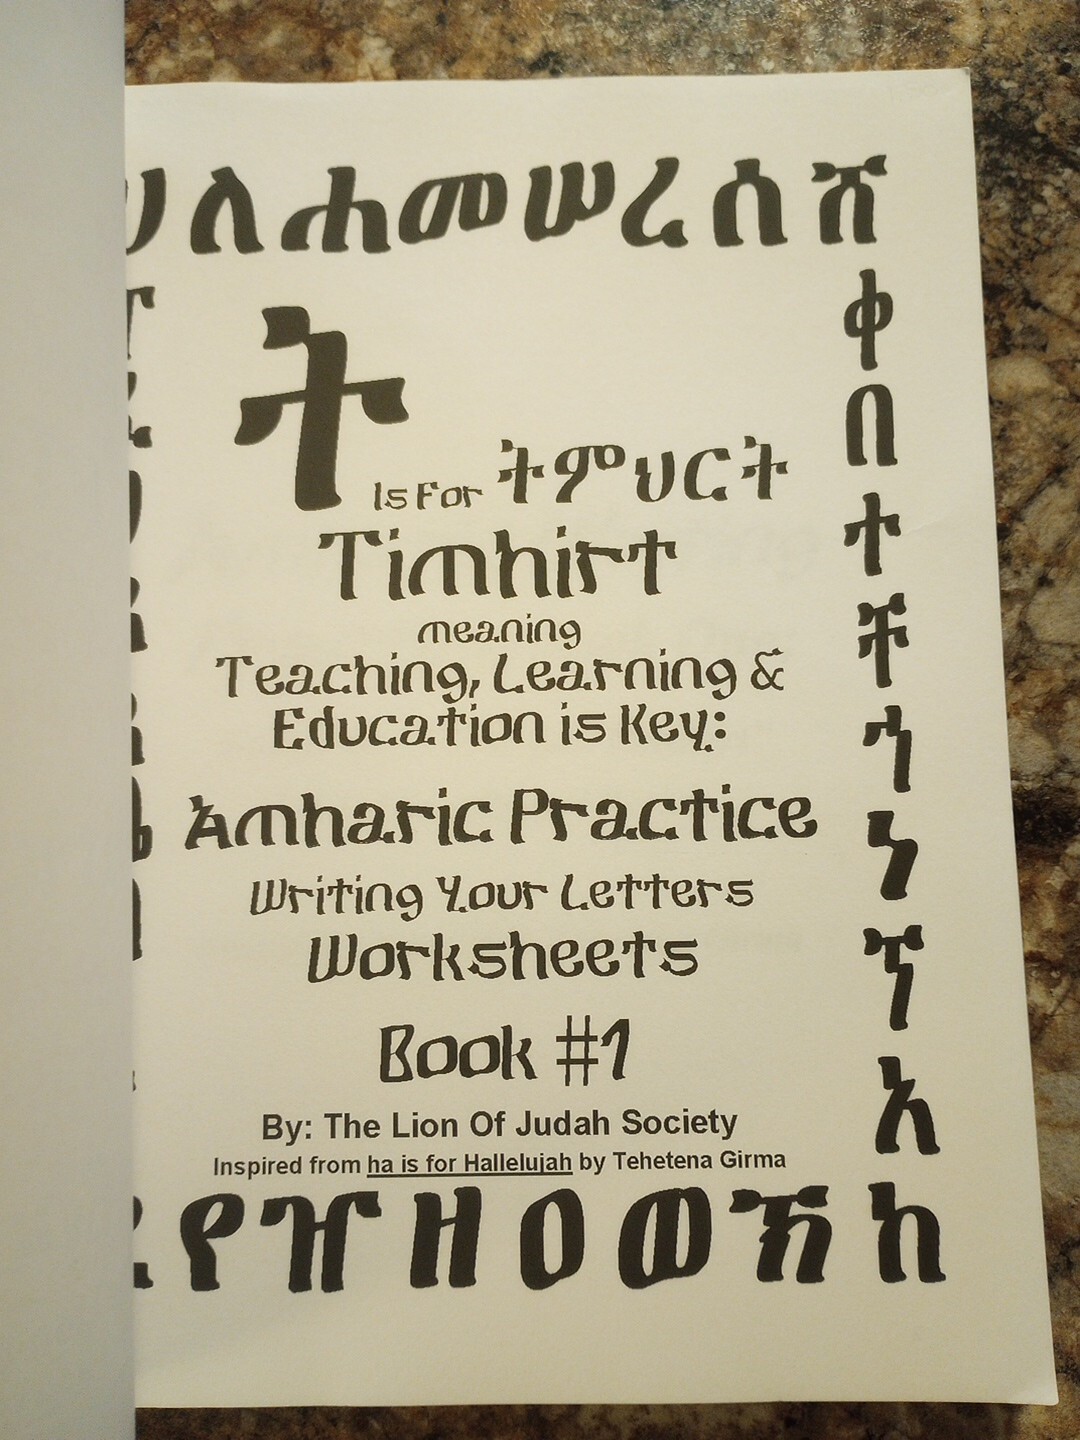 ሀ ለ ሐ መ ሠ ረ ሰ ሸ
ቀ
በ
ተ
ቸ
ኀ
ነ
ኘ
አ
ት Is For ትምህርት
Timhirt
meaning
Teaching, Learning &
Education is Key:
Amharic Practice
Writing Your Letters
Worksheets
Book #1
By: The Lion Of Judah Society
Inspired from ha is for Hallelujah by Tehetena Girma
የ ዠ ዘ ዐ ወ ኸ ከ